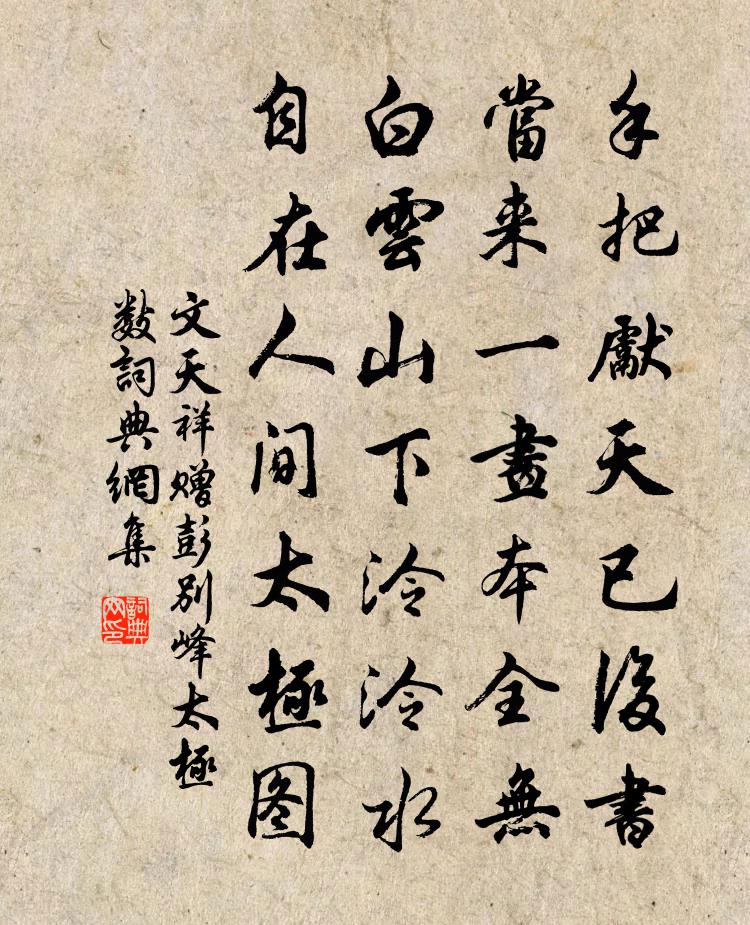 手把獻天已後書
當来一畫本全無
白雲山下泠泠水
自在人间太極图
文天祥赠彭別峰太極
数詞典網集
詞典
网印